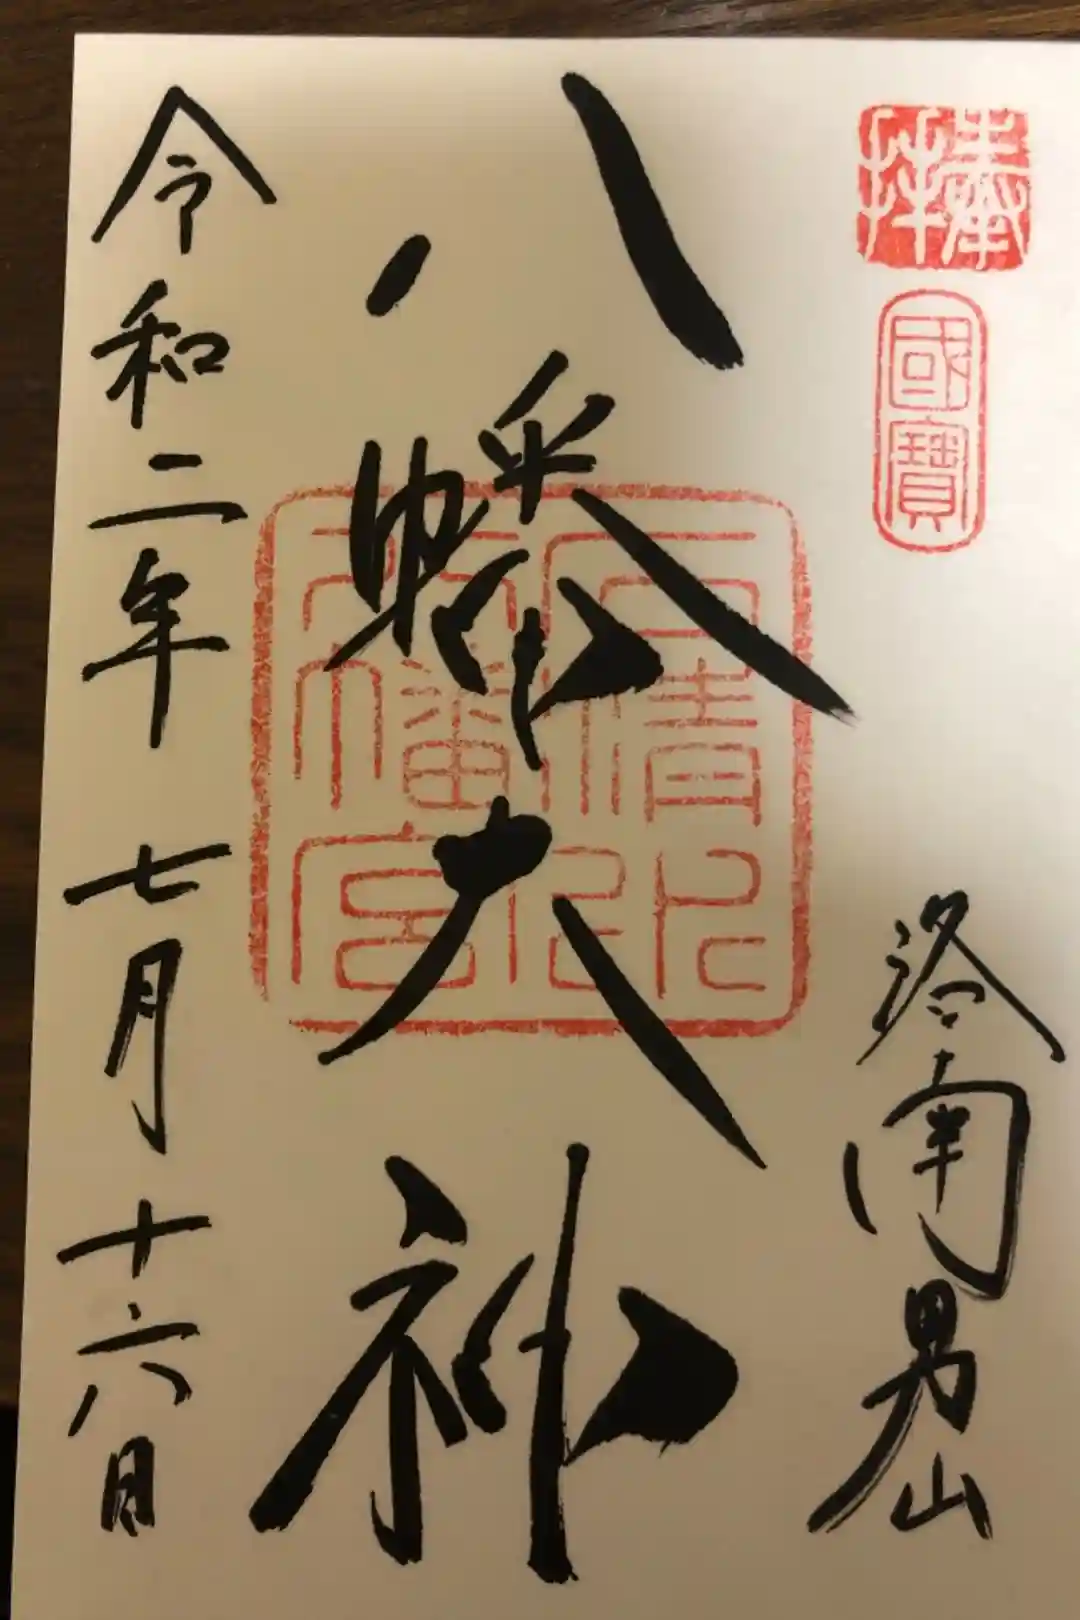 奉拝
國寶
洛南男山
八幡大神
石清水
八幡宮
令和二年 七月十六日